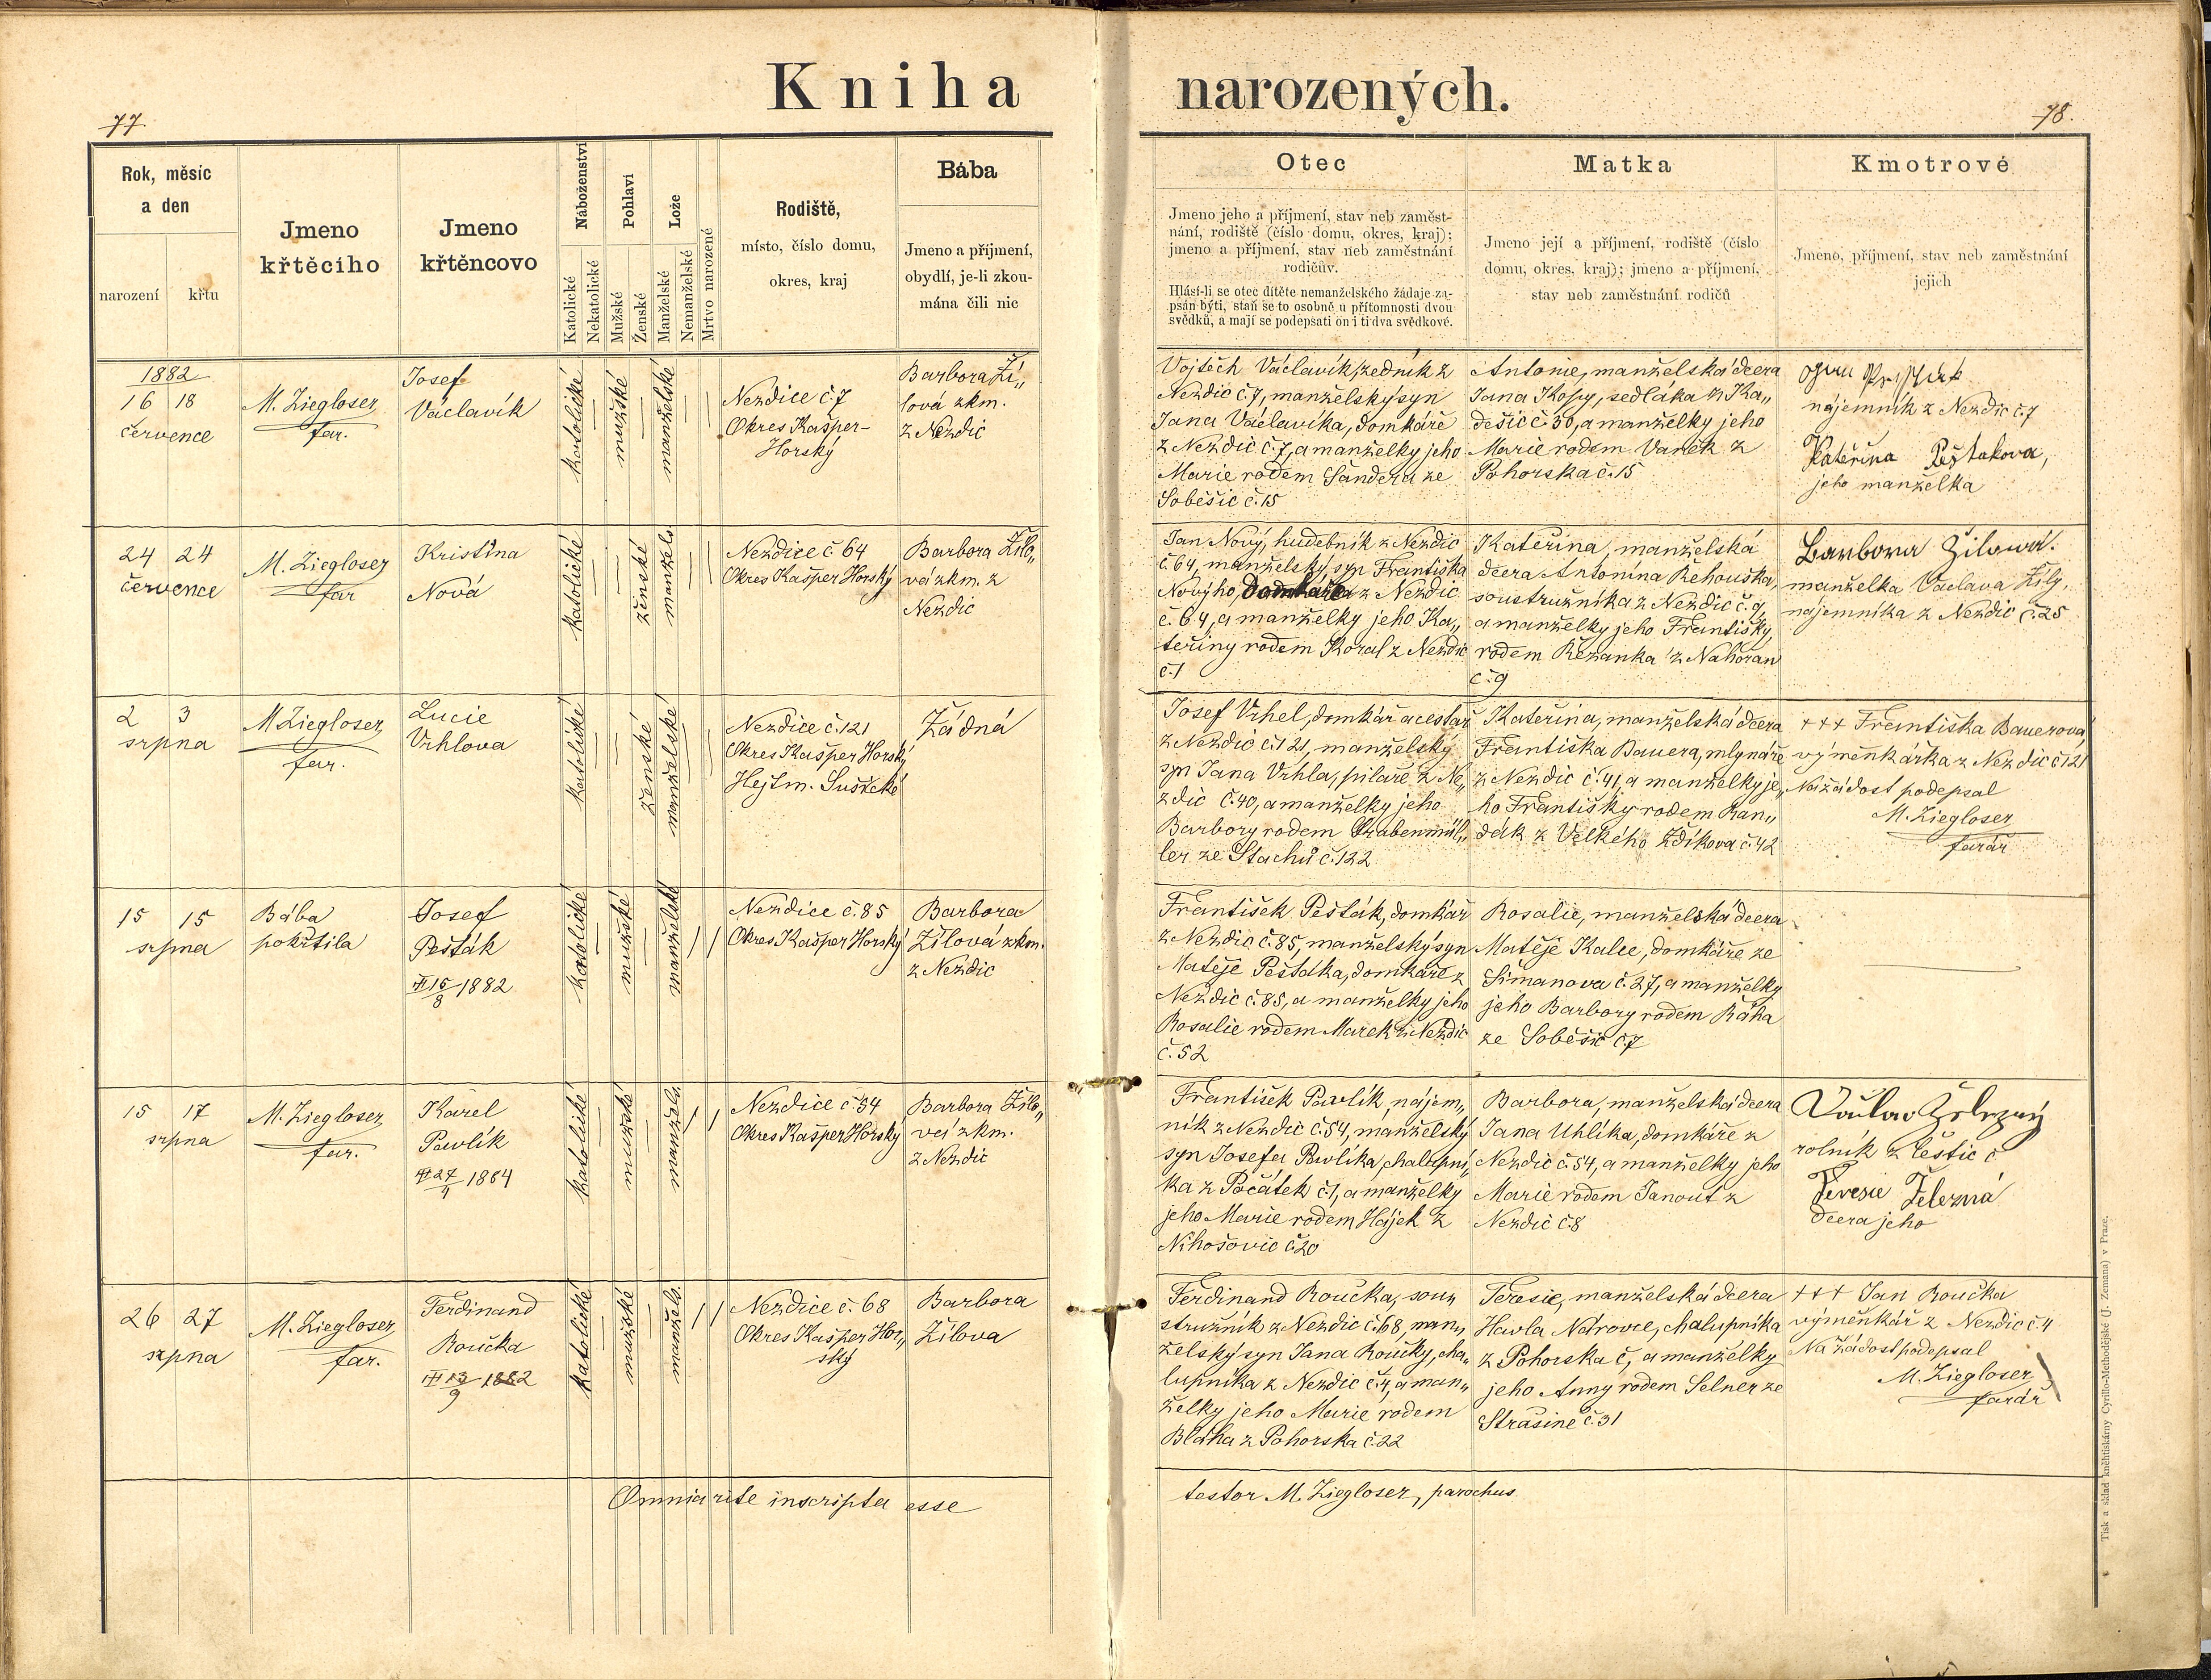 Kniha narozených.
77.
78.
Rok, měsíc
a den
narození
křtu
Jmeno
křtěcího
Jmeno
křtěncovo
Náboženství
Katolické
Nekatolické
Pohlaví
Mužské
Ženské
Lože
Manželské
Nemanželské
Mrtvo narozené
Rodiště,
místo, číslo domu,
okres, kraj
Bába
Jmeno a příjmení,
obydlí, je-li zkou-
mána čili nic
Otec
Jmeno jeho a příjmení, stav neb zaměst-
nání, rodiště (číslo domu, okres, kraj);
jmeno a příjmení, stav neb zaměstnání
rodičův.
Hlásí-li se otec dítěte nemanželského žádaje za-
psán býti, staň se to osobně u přítomnosti dvou
svědků, a mají se podepsati on i ti dva svědkové.
Matka
Jmeno její a příjmení, rodiště (číslo
domu, okres, kraj); jmeno a příjmení,
stav neb zaměstnání rodičů
Kmotrové
Jmeno, příjmení, stav neb zaměstnání
jejich
1882
16 18
července
M. Ziegloser
far.
Josef
Václavík
katolické
mužské
manželské
Nezdice č. 7
Okres Kašper-
Horský
Barbora Ží„
lová zkm.
z Nezdic
Vojtěch Václavík, zedník z
Nezdic č. 7, manželský syn
Jana Václavíka, domkáře
z Nezdic č. 7, a manželky jeho
Marie rodem Šandera ze
Soběšic č. 15
Antonie, manželská dcera
Jana Kopy, sedláka z Ka„
dešic č. 30, a manželky jeho
Marie rodem Vaněk z
Pohorska č. 15
nájemník z Nezdic č. 7
Kateřina Pešťakova,
jeho manželka
24 24
července
M. Ziegloser
far
Kristina
Nová
katolické
ženské
manžels
Nezdice č 64
Okres Kašper Horský
Barbora Žilo„
vá zkm. z
Nezdic
Jan Nový, hudebník z Nezdic
č. 64, manželský syn Františka
Nového, domkáře z Nezdic
č. 64, a manželky jeho Ka„
teřiny rodem Koral z Nezdic
č. 1
Kateřina, manželská
dcera Antonína Řehouška,
soustružníka z Nezdic č. 9,
a manželky jeho Františky,
rodem Řezanka z Nahořan
č. 9
Barbora Žilová.
manželka Václava Žíly,
nájemníka z Nezdic č. 25
2 3
srpna
M Ziegloser
far.
Lucie
Vrhlova
katolické
ženské
manželské
Nezdice č. 121
Okres Kašper Horský
Hejtm. Sušické
Žádná
Josef Vrhel, domkář a cestář
z Nezdic č. 121, manželský
syn Jana Vrhla, pilaře z Ne„
zdic č. 40, a manželky jeho
Barbory rodem Grabenmül„
ler ze Stachů č. 122
Kateřina, manželská dcera
Františka Bauera, mlynáře
z Nezdic č. 41, a manželky je„
ho Františky rodem Ran„
dák z Velkého Zdíkova č. 42
+++ Františka Bauerová,
výměnkářka z Nezdic č 121
Na žádost podepsal
M. Ziegloser
farář
15 15
srpna
Bába
pokřtila
Josef
Pešťák
15/8 1882
katolické
mužské
manželské
Nezdice č. 85
Okres Kašper Horský
Barbora
Žílová zkm.
z Nezdic
František Pešťák, domkář
z Nezdic č. 85, manželský syn
Matěje Pešťáka, domkáře z
Nezdic č. 85, a manželky jeho
Rosalie rodem Marek z Nezdic
č. 52
Rosalie, manželská dcera
Matěje Kalee, domkáře ze
Šimanova č. 27, a manželky
jeho Barbory rodem Ráha
ze Soběšic č. 7
15 17
srpna
M. Ziegloser
far.
Karel
Pavlík
katolické
mužské
manžels.
Nezdice č 54
Okres Kašper Horský
Barbora Žílo„
vá zkm.
z Nezdic
František Pavlík, nájem„
ník z Nezdic č. 54, manželský
syn Josefa Pavlíka, chalupní„
ka z Počátek č. 1, a manželky
jeho Marie rodem Hájek z
Nihošovic č. 20
Barbora, manželská dcera
Jana Uhlíka, domkáře z
Nezdic č. 54, a manželky jeho
Marie rodem Janout z
Nezdic č. 8
Václav Železný
rolník z Čestic č
Teresie Železná
dcera jeho
26 27
srpna
M. Ziegloser
far.
Ferdinand
Roučka
13/9 1882
katolické
mužské
manžels.
Nezdice č. 68
Okres Kašper Hor„
ský
Barbora
Žílova
Ferdinand Roučka, sou„
stružník z Nezdic č. 68, man„
želský syn Jana Roučky, cha„
lupníka z Nezdic č. 4, a man„
želky jeho Marie rodem
Bláha z Pohorska č. 22
Teresie, manželská dcera
Havla Nárovce, chalupníka
z Pohorska č, a manželky
jeho Anny rodem Selner ze
Strašíne č. 31
+++ Jan Roučka
výměnkář z Nezdic č. 4
Na žádost podepsal
M. Ziegloser
farář
Omnia rite inscripta esse
testor M. Ziegloser, parochus
Tisk a sklad kněhtiskárny Cyrillo-Methodějské (J. Zeman) v Praze.